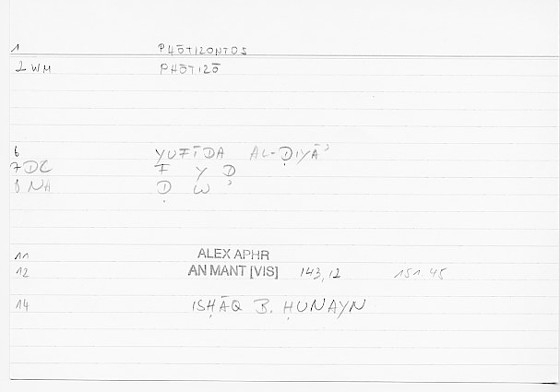 1 PHŌTIZONTOS
2 WM PHŌTIZŌ
6 YUFĪDA AL-ḌIYĀʾ
7 DC F Y D
8 NA Ḍ W ʾ
11 ALEX APHR
12 AN MANT [VIS] 143,12 151 45
14 ISḤĀQ B. ḤUNAYN